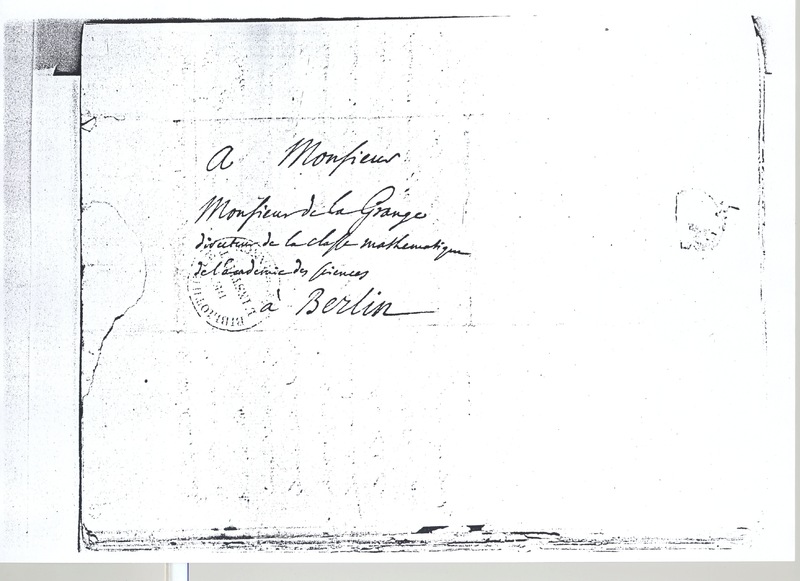 A Monsieur
Monsieur de la Grange
directeur de la classe mathematique
de l'academie des sciences
à Berlin
BIBLIOTH
DE
L'INST